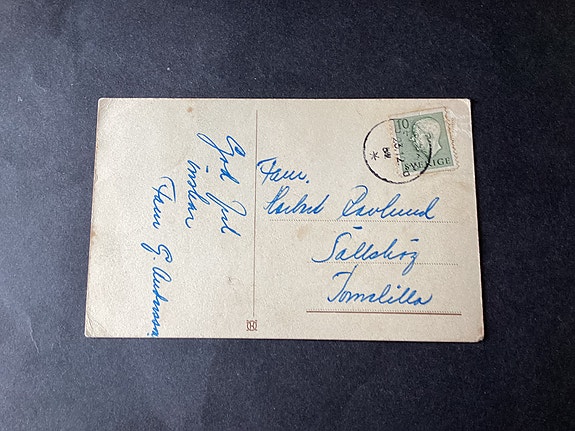 God Jul
önskar
Fam G. Andersson
Fam.
Ravlund
Sällshög
Tomelilla
10
SVERIGE